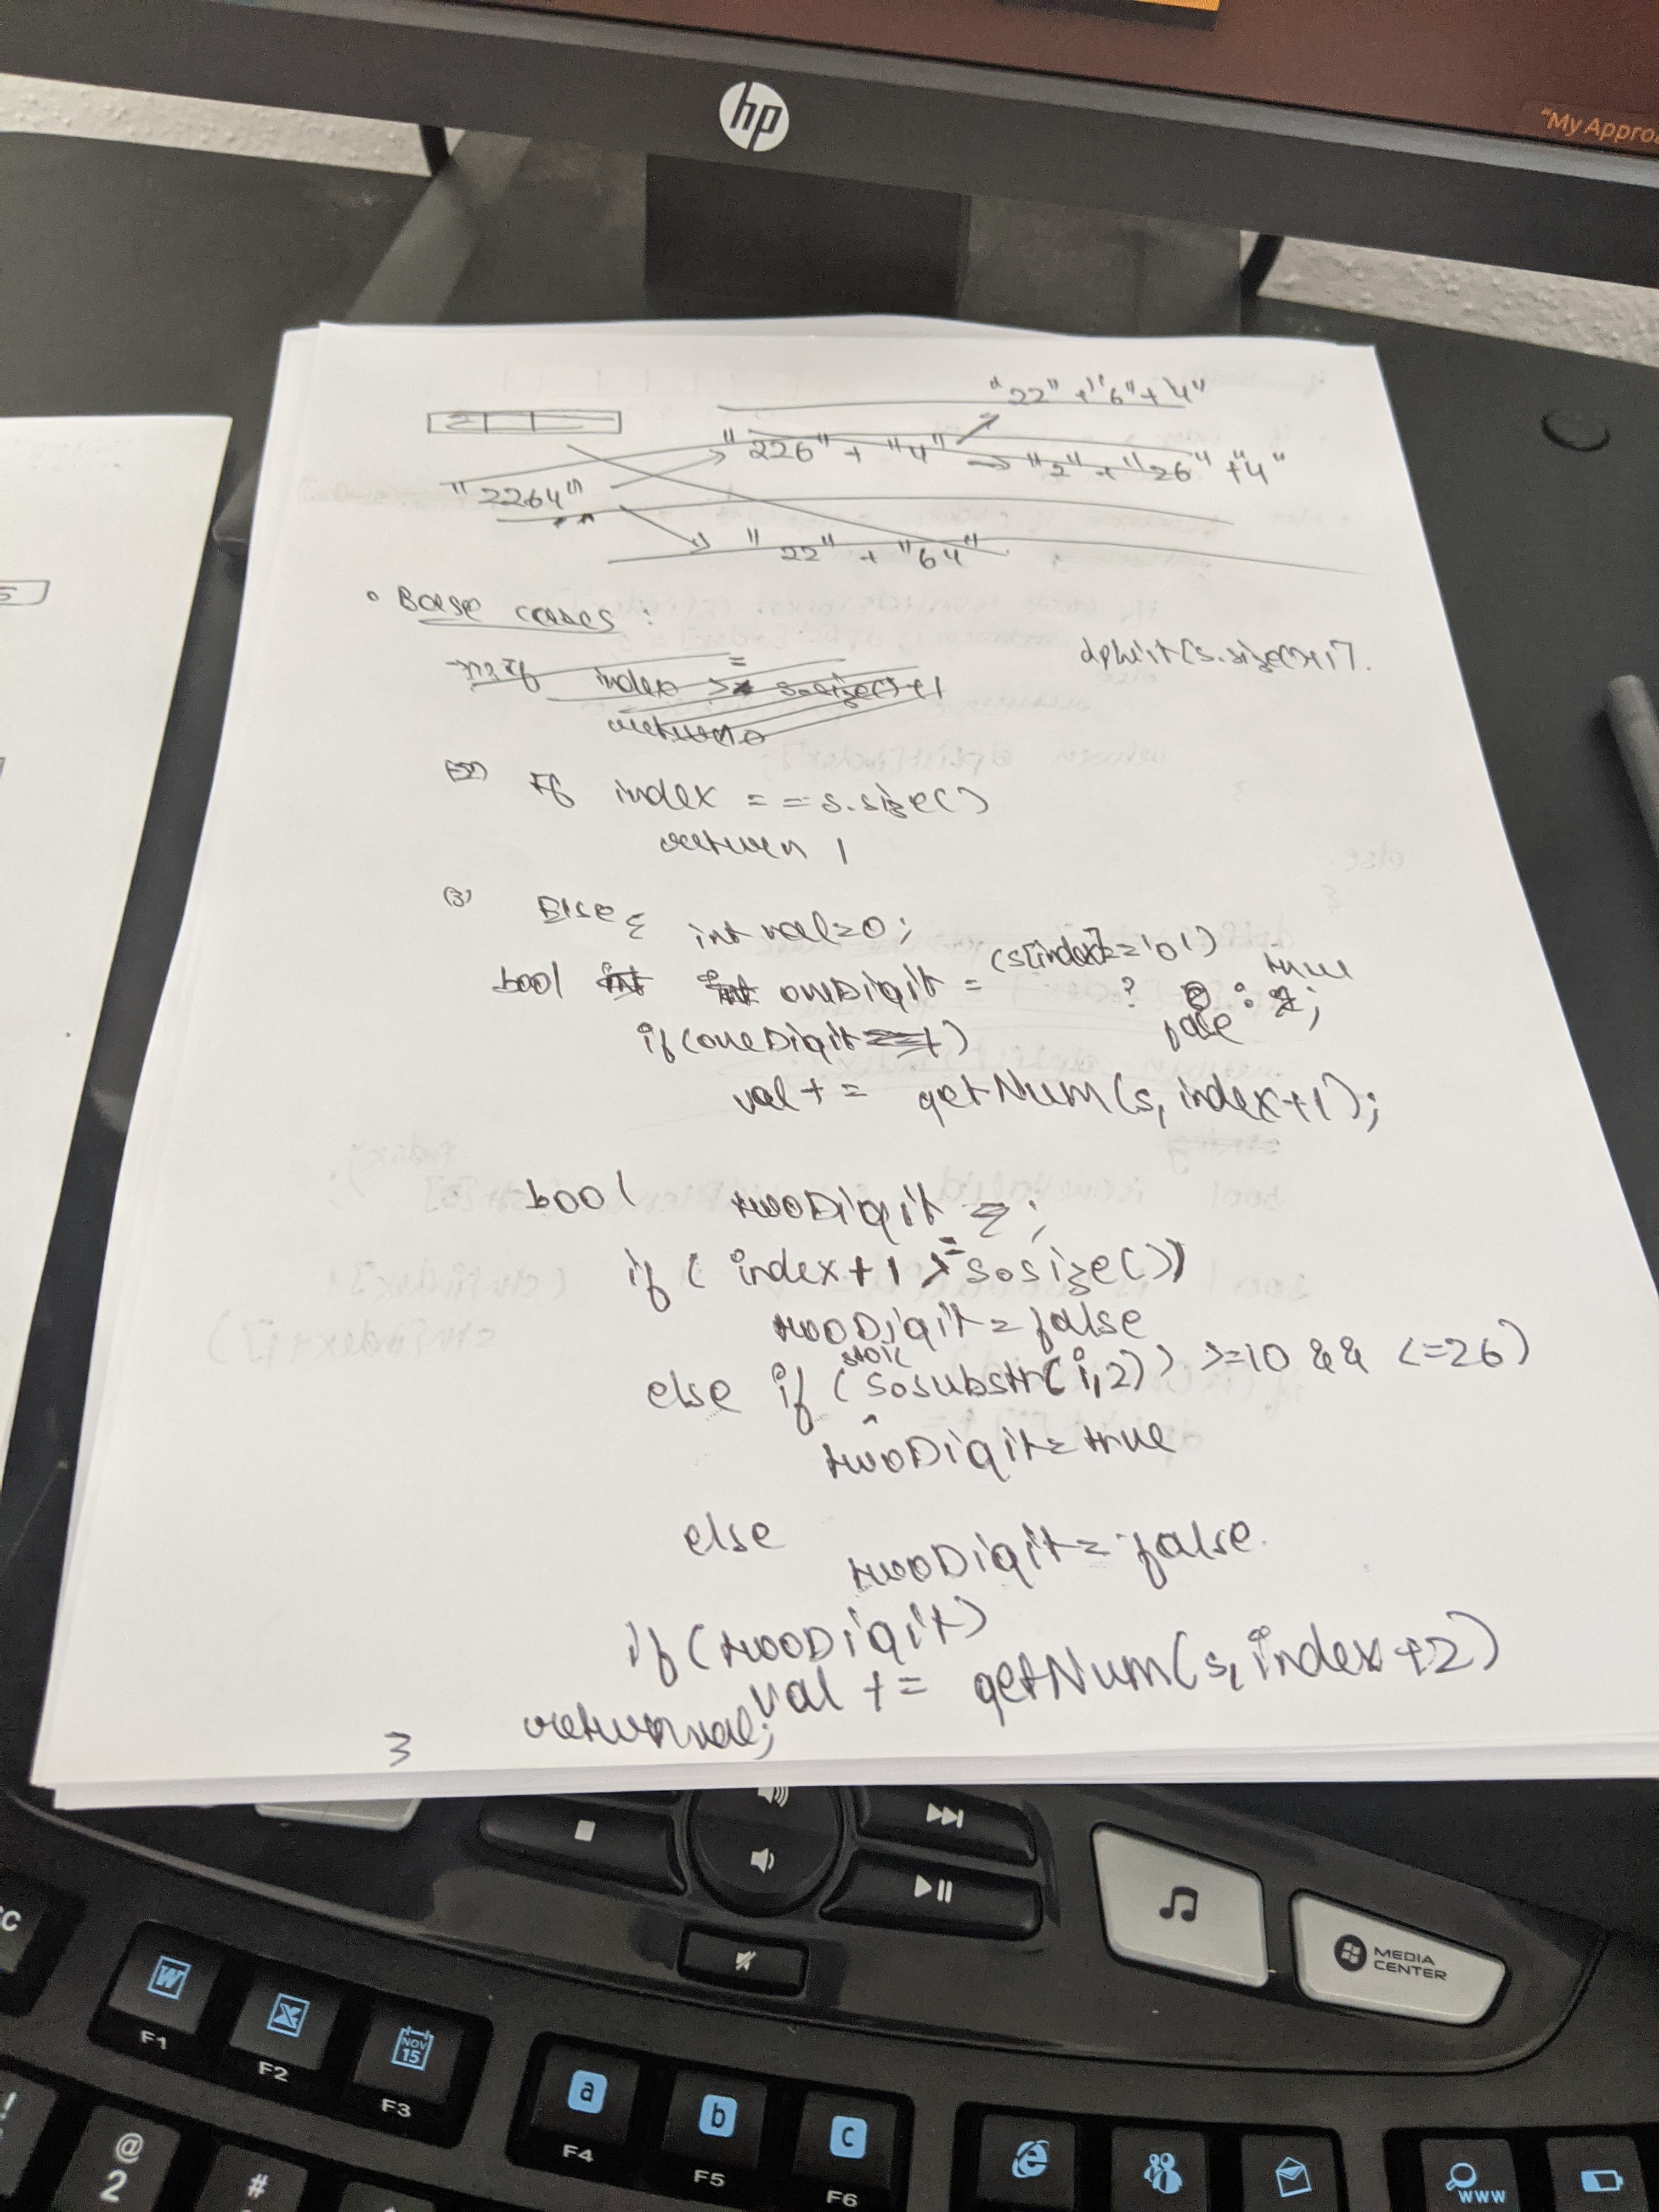 hp
"My Approa
"22" + "6" + "4"
"226" + "4" → "2" + "26" + "4"
"2264"
"22" + "64"
Base cases:
dplist[s.size()+1].
If index >= s.size()+1
return 0
(2) If index == s.size()
return 1
(3) Else { int val=0;
bool int int oneDigit = (s[index]=='0') ? 0 : 1;
true
false
if(oneDigit==1)
val += getNum(s, index+1);
bool twoDigit =;
if ( index+1 >= s.size())
twoDigit = false
stoi(
else if (s.substr(i,2)) >=10 && <=26)
twoDigit = true
else
twoDigit = false.
if(twoDigit)
val += getNum(s, index+2)
return val;
}
MEDIA
CENTER
W
X
NOV
15
a
b
c
F1
F2
F3
F4
F5
F6
WWW
!
@
2
#